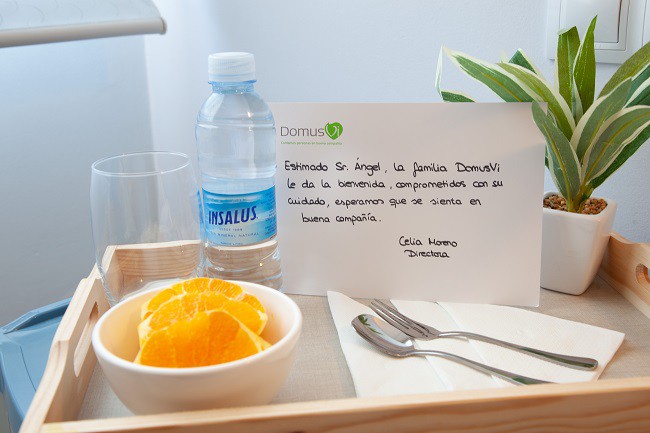 DomusVi
Estimado Sr. Ángel, la familia DomusVi
le da la bienvenida, comprometidos con su
cuidado, esperamos que se sienta en
buena compañía.
Celia Moreno
Directora
INSALUS
MINERAL NATURAL